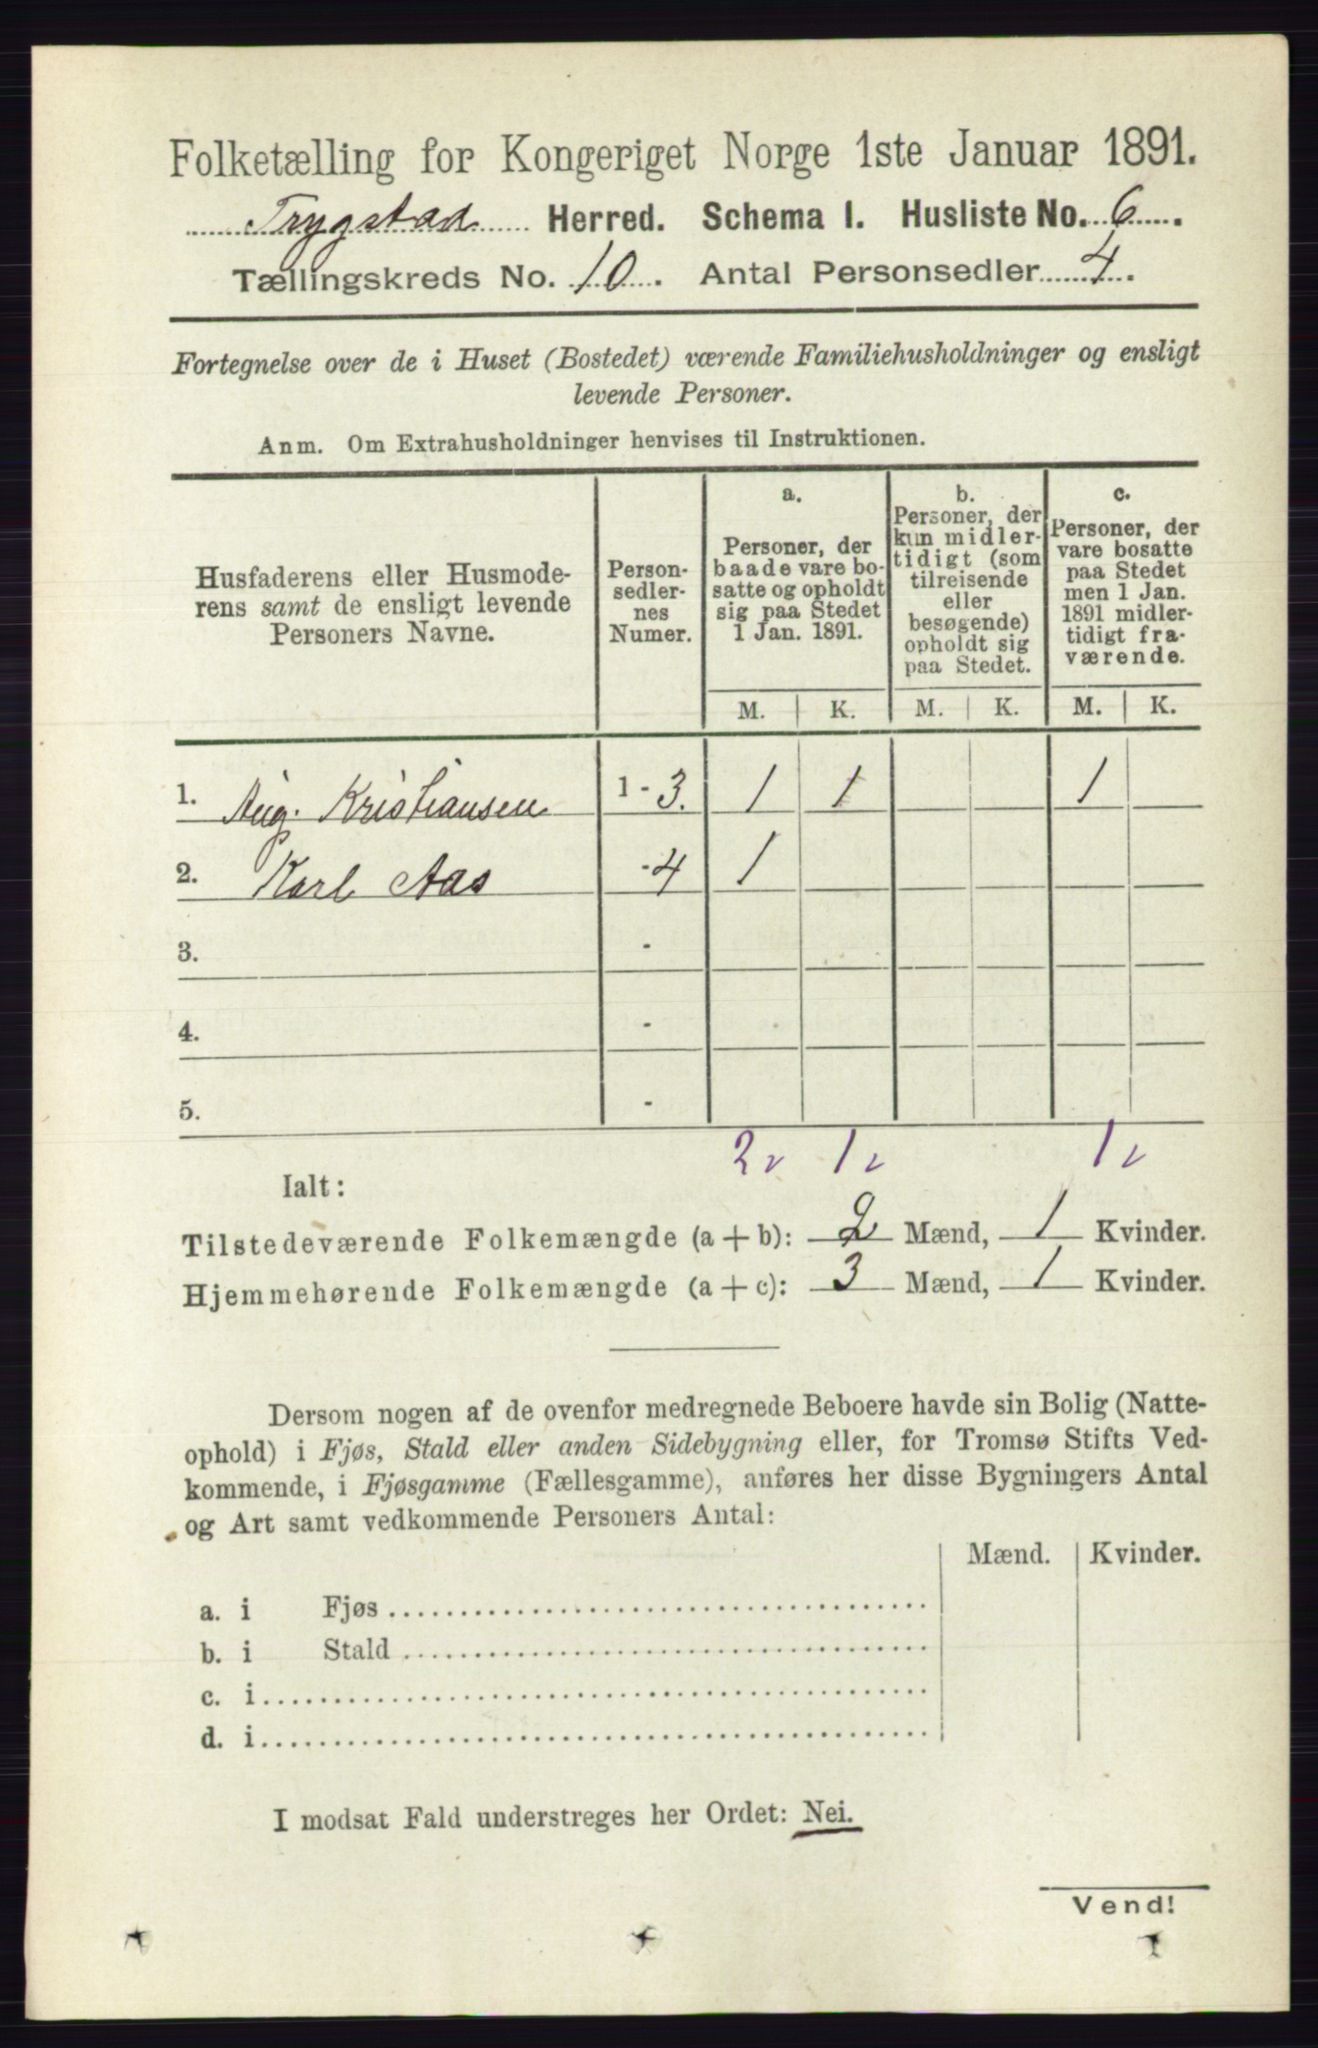 Folketælling for Kongeriget Norge 1ste Januar 1891.
Trygstad Herred. Schema I. Husliste No. 6.
Tællingskreds No. 10. Antal Personsedler 4.
Fortegnelse over de i Huset (Bostedet) værende Familiehusholdninger og ensligt
levende Personer.
Anm. Om Extrahusholdninger henvises til Instruktionen.
Husfaderens eller Husmode-
rens samt de ensligt levende
Personers Navne.
Person-
sedler-
nes
Numer.
a.
Personer, der
baade vare bo-
satte og opholdt
sig paa Stedet
1 Jan. 1891.
b.
Personer, der
kun midler-
tidigt (som
tilreisende
eller
besøgende)
opholdt sig
paa Stedet.
c.
Personer, der
vare bosatte
paa Stedet
men 1 Jan.
1891 midler-
tidigt fra-
værende.
M. K. M. K. M. K.
1. Aug. Kristiansen 1 - 3. 1 1 1
2. Karl Aas - 4 1
3. -
4. -
5. -
2 1 1
Ialt:
Tilstedeværende Folkemængde (a + b): 2 Mænd, 1 Kvinder.
Hjemmehørende Folkemængde (a + c): 3 Mænd, 1 Kvinder.
Dersom nogen af de ovenfor medregnede Beboere havde sin Bolig (Natte-
ophold) i Fjøs, Stald eller anden Sidebygning eller, for Tromsø Stifts Ved-
kommende, i Fjøsgamme (Fællesgamme), anføres her disse Bygningers Antal
og Art samt vedkommende Personers Antal:
Mænd. Kvinder.
a. i Fjøs
b. i Stald
c. i
d. i
I modsat Fald understreges her Ordet: Nei.
Vend!